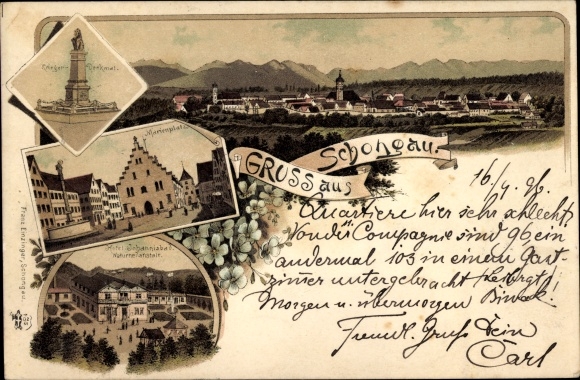 Krieger-Denkmal.
Marienplatz
Hotel Johannisbad
Naturheilanstalt.
GRUSS aus Schongau.
Franz Einsinger, Schongau.
Quartiere hier sehr schlecht,
Von der Compagnie sind 96 ein
andermal 103 in einem Gast-
zimmer untergebracht
Morgen u. übermorgen Biwak!
Freundl. Gruß Dein
Carl